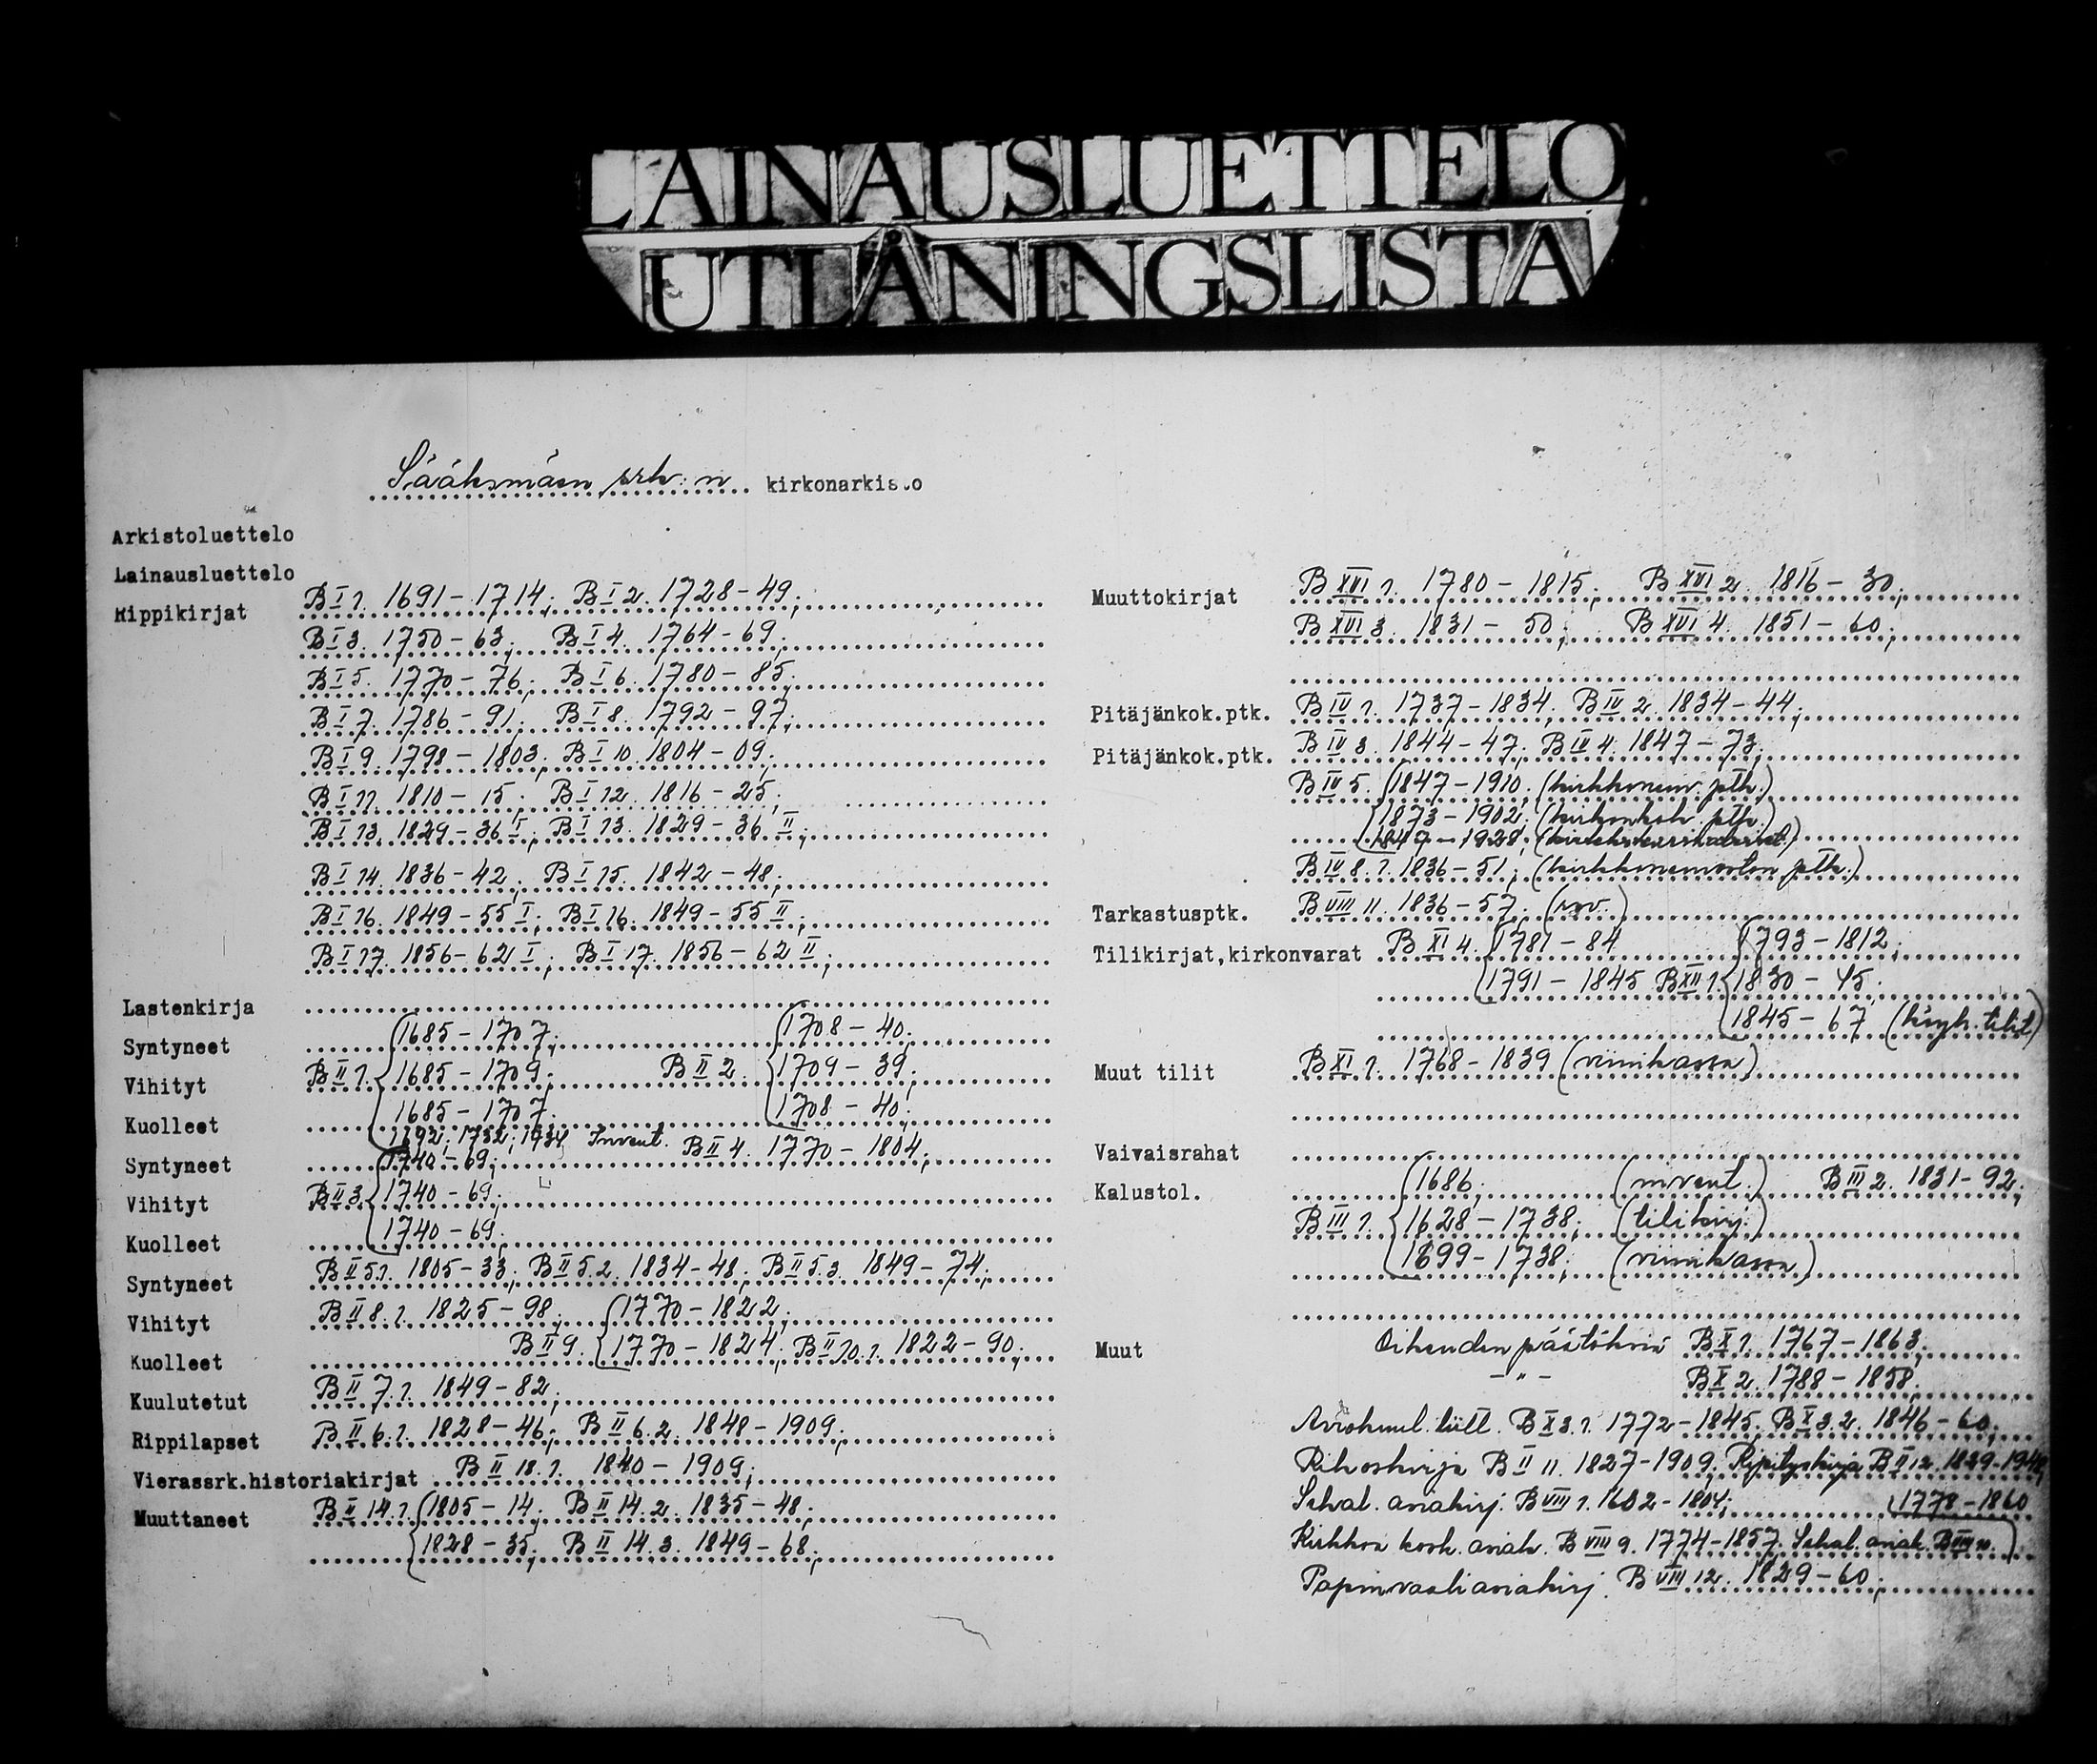 LAINAUSLUETTELO
UTLÅNINGSLISTA
Sääksmäen srk:n kirkonarkisto
Arkistoluettelo
Lainausluettelo
Rippikirjat B I 1. 1691-1714; B I 2. 1728-49;
B I 3. 1750-63; B I 4. 1764-69;
B I 5. 1770-76; B I 6. 1780-85;
B I 7. 1786-91; B I 8. 1792-97;
B I 9. 1798-1803; B I 10. 1804-09;
B I 11. 1810-15; B I 12. 1816-25;
B I 13. 1829-36 I; B I 13. 1829-36 II;
B I 14. 1836-42; B I 15. 1842-48;
B I 16. 1849-55 I; B I 16. 1849-55 II;
B I 17. 1856-62 I; B I 17. 1856-62 II;
Lastenkirja
Syntyneet 1685-1707; 1708-40;
Vihityt B II 1. 1685-1709; B II 2. 1709-39;
Kuolleet 1685-1707; 1708-40;
1692; 1732; 1734 Invent.
Syntyneet 1740-69; B II 4. 1770-1804;
Vihityt B II 3. 1740-69;
Kuolleet 1740-69;
Syntyneet B II 5.1. 1805-33; B II 5.2. 1834-48; B II 5.3. 1849-74;
Vihityt B II 8.1. 1825-98; 1770-1822;
Kuolleet B II 9. 1770-1824; B II 10.1. 1822-90;
Kuulutetut B II 7.1. 1849-82;
Rippilapset B II 6.1. 1828-46; B II 6.2. 1848-1909;
Vierassrk.historiakirjat B II 18.1. 1840-1909;
Muuttaneet B II 14.1. 1805-14; B II 14.2. 1835-48;
1828-35; B II 14.3. 1849-68;
Muuttokirjat B XVI 1. 1780-1815; B XVI 2. 1816-30;
B XVI 3. 1831-50; B XVI 4. 1851-60;
Pitäjänkok.ptk. B IV 1. 1737-1834; B IV 2. 1834-44;
Pitäjänkok.ptk. B IV 3. 1844-47; B IV 4. 1847-73;
B IV 5. 1847-1910; (kirkkoneuv. ptk.)
1873-1902; (kirkonkok. ptk.)
1847-1928;
B IV 8.1. 1836-51; (kirkkoneuvoston ptk.)
Tarkastusptk. B VIII 11. 1836-57; (rov.)
Tilikirjat,kirkonvarat B XI 4. 1781-84 1793-1812;
1791-1845 B XII 1. 1830-45;
1845-67 (köyh. tilit)
Muut tilit B XI 1. 1768-1839 (viinikassa)
Vaivaisrahat
Kalustol. 1686; (invent.) B III 2. 1831-92;
B III 1. 1628-1738; (tilikirj.)
1699-1738; (viinikassa)
Muut Oikeuden päätöksiä B X 1. 1767-1863;
-"- B X 2. 1788-1858;
Aviokuul. luett. B X 3.1. 1772-1845; B X 3.2. 1846-60;
Rikoskirja B II 11. 1827-1909; Ripityskirja B II 12. 1829-1948;
Sekal. asiakirj. B VIII 1. 1602-1804; 1778-1860
Kirkkoa kosk. asiak. B VIII 9. 1774-1857. Sekal. asiak. B VIII 10.
Papinvaaliasiakirj. B VIII 12. 1829-60;